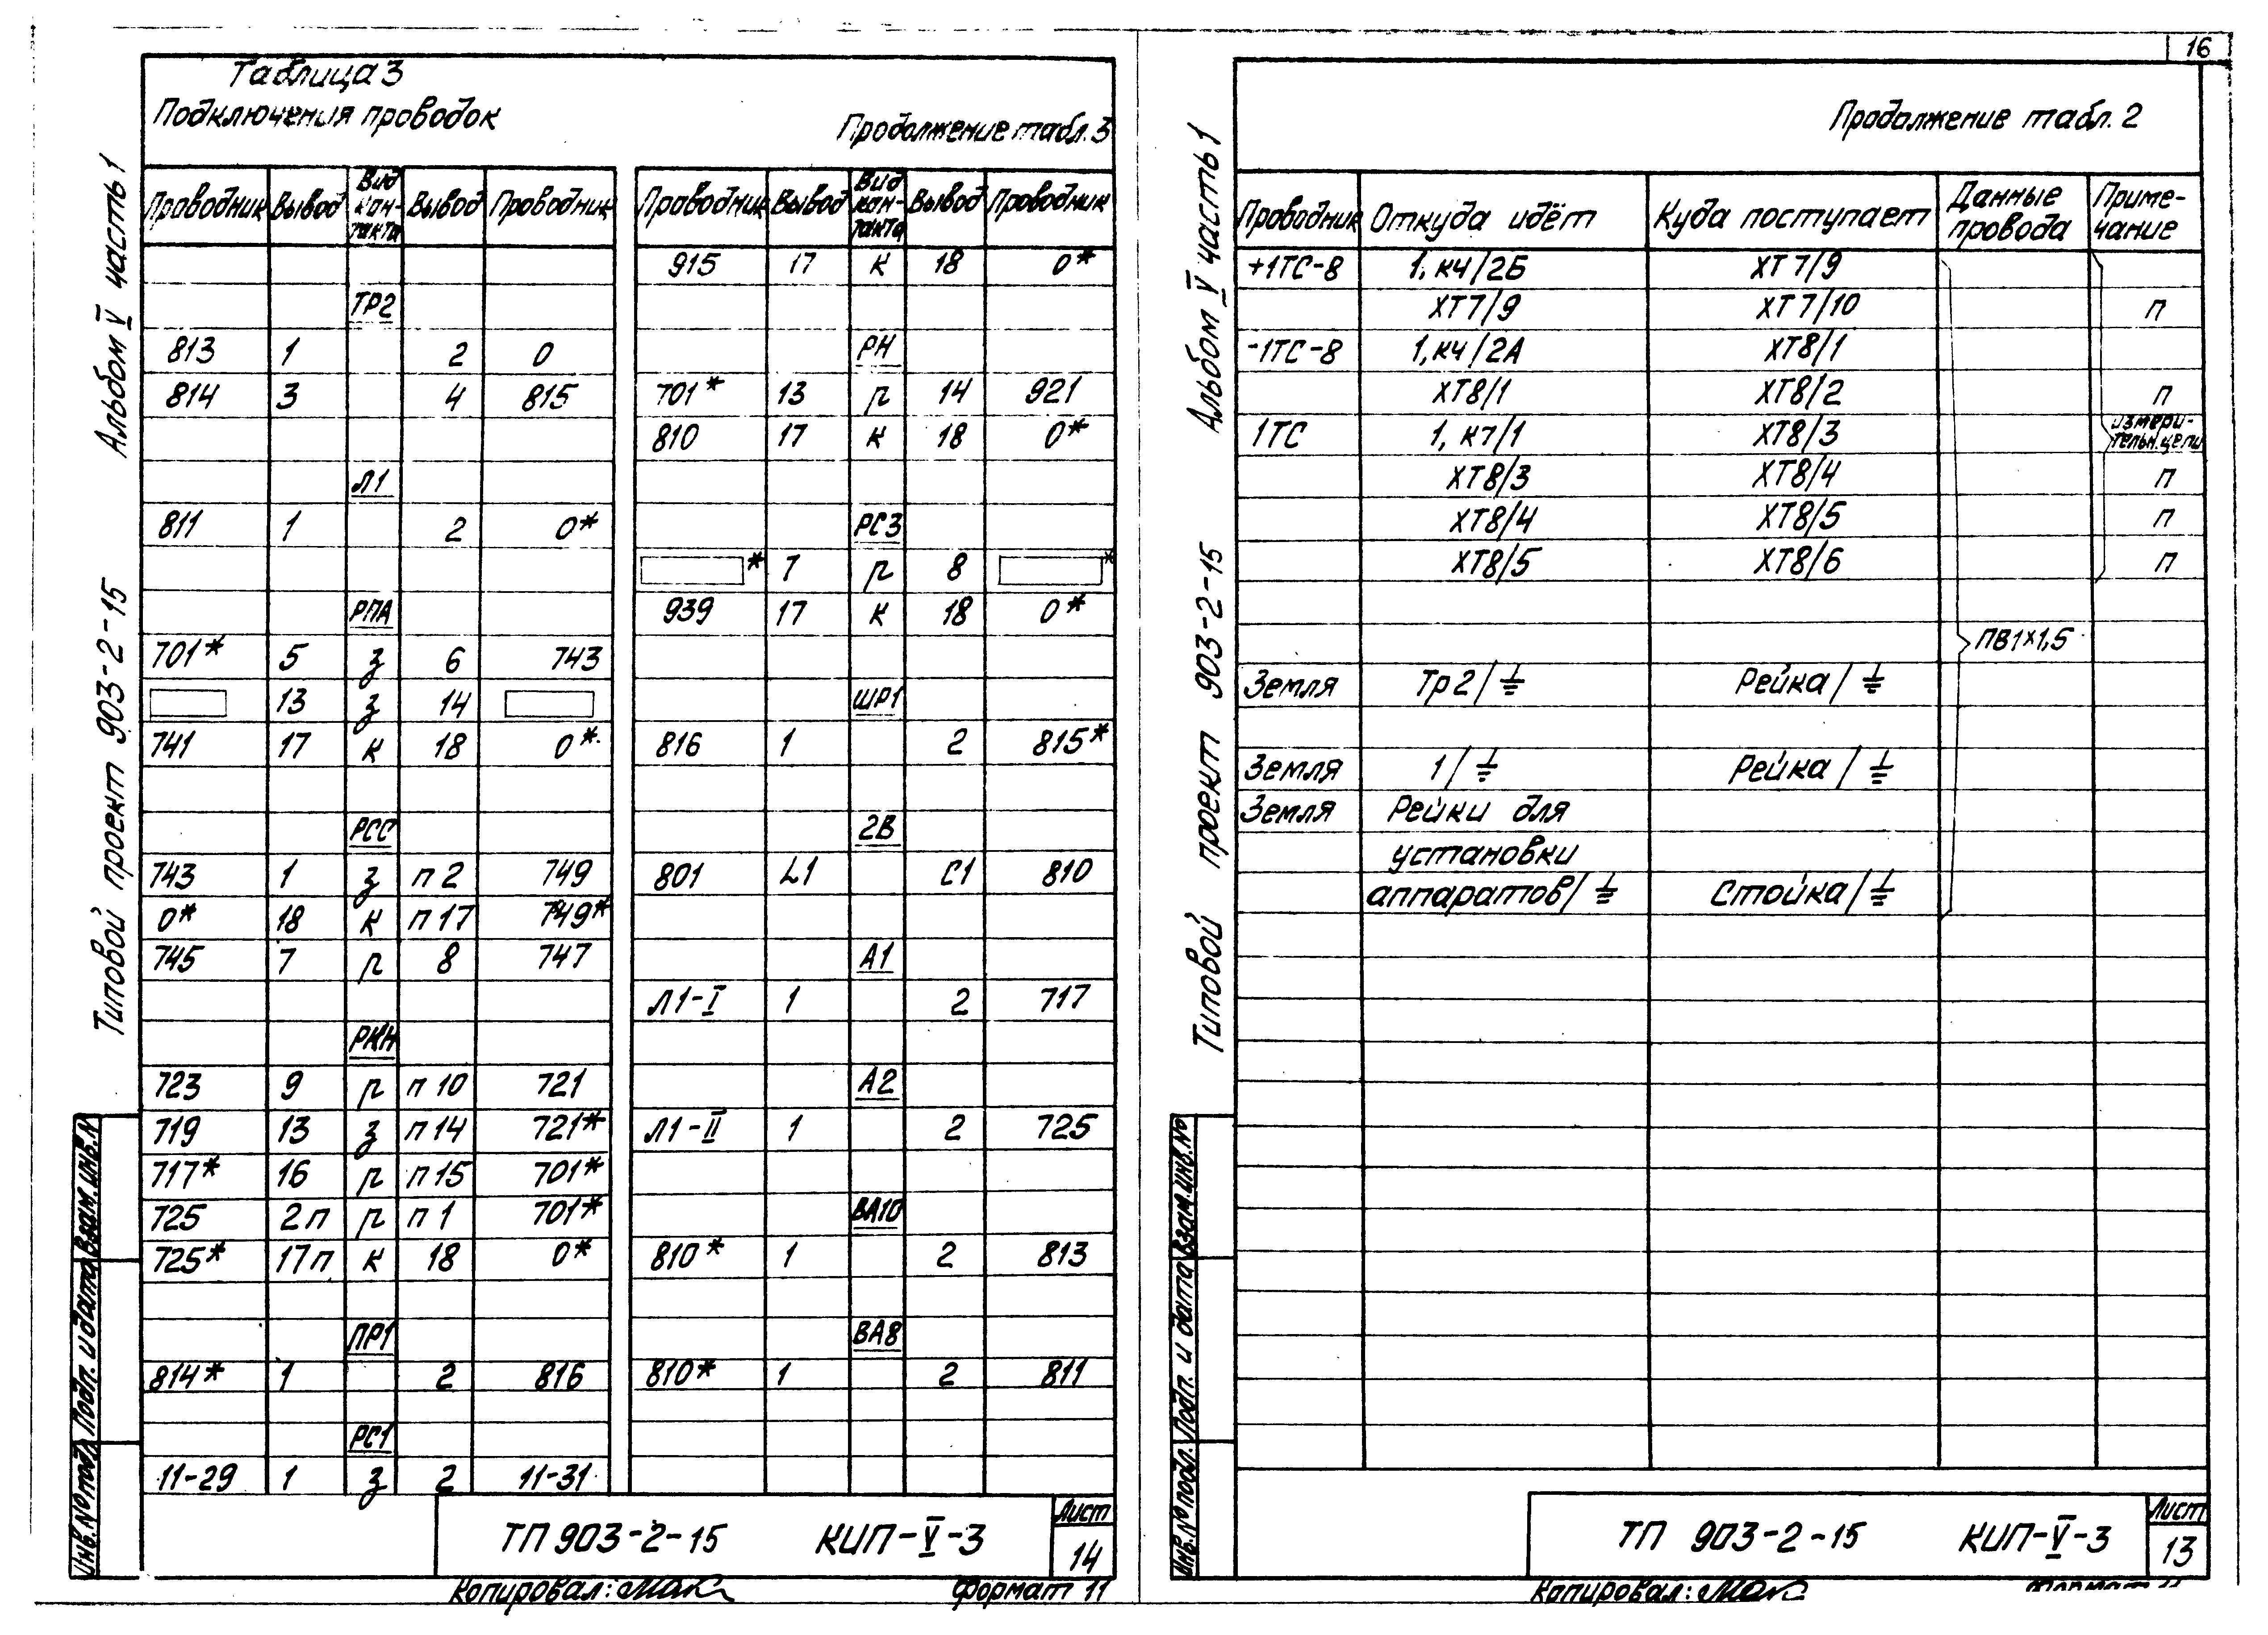 Таблица 3
Подключения проводок
Продолжение табл. 3
Проводник Вывод Вид кон-такта Вывод Проводник
ТР2
813 1 2 0
814 3 4 815
Л1
811 1 2 0*
РПА
701* 5 з 6 743
13 з 14
741 17 к 18 0*
РСС
743 1 з п 2 749
0* 18 к п 17 749*
745 7 р 8 747
РКН
723 9 р п 10 721
719 13 з п 14 721*
717* 16 р п 15 701*
725 2 п р п 1 701*
725* 17 п к 18 0*
ПР1
814* 1 2 816
РС1
11-29 1 з 2 11-31
Проводник Вывод Вид кон-такта Вывод Проводник
915 17 к 18 0*
РН
701* 13 р 14 921
810 17 к 18 0*
РС3
* 7 р 8 *
939 17 к 18 0*
ШР1
816 1 2 815*
2В
801 L1 С1 810
А1
Л1-I 1 2 717
А2
Л1-II 1 2 725
ВА10
810* 1 2 813
ВА8
810* 1 2 811
ТП 903-2-15 КИП-V-3
Лист
14
Копировал:
Формат 11
Альбом V часть 1
Типовой проект 903-2-15
Взам. инв. №
Подп. и дата
Инв. № подл.
16
Продолжение табл. 2
Проводник Откуда идёт Куда поступает Данные провода Приме-чание
+1ТС-8 1, кч/2Б ХТ7/9
ХТ7/9 ХТ7/10 п
-1ТС-8 1, кч/2А ХТ8/1
ХТ8/1 ХТ8/2 п
1ТС 1, к7/1 ХТ8/3 измери-тельн. цепи
ХТ8/3 ХТ8/4 п
ХТ8/4 ХТ8/5 п
ХТ8/5 ХТ8/6 п
ПВ1х1,5
Земля Тр2/⏚ Рейка/⏚
Земля 1/⏚ Рейка/⏚
Земля Рейки для
установки
аппаратов/⏚ Стойка/⏚
ТП 903-2-15 КИП-V-3
Лист
13
Копировал:
Формат 11
Альбом V часть 1
Типовой проект 903-2-15
Взам. инв. №
Подп. и дата
Инв. № подл.